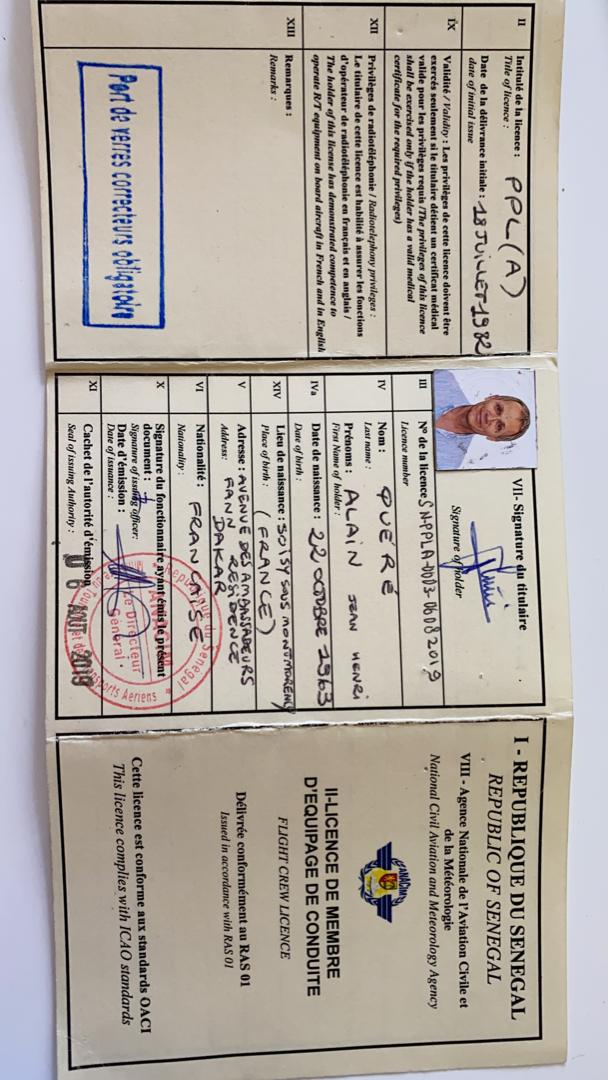 I - REPUBLIQUE DU SENEGAL
REPUBLIC OF SENEGAL
VIII - Agence Nationale de l'Aviation Civile et
de la Météorologie
National Civil Aviation and Meteorology Agency
II-LICENCE DE MEMBRE
D'EQUIPAGE DE CONDUITE
FLIGHT CREW LICENCE
Délivrée conformément au RAS 01
Issued in accordance with RAS 01
Cette licence est conforme aux standards OACI
This licence complies with ICAO standards
VII- Signature du titulaire
Signature of holder
III N° de la licence SNPPLA-0003-06082019
Licence number
IV Nom : QUÉRÉ
Last name :
Prénoms : ALAIN JEAN HENRI
First Name of holder :
IVa Date de naissance : 22 OCTOBRE 1963
Date of birth :
XIV Lieu de naissance : SOISY SOUS MONTMORENCY
Place of birth : (FRANCE)
V Adresse : AVENUE DES AMBASSADEURS
Address: FANN RESIDENCE
DAKAR
VI Nationalité : FRANÇAISE
Nationality:
X Signature du fonctionnaire ayant émis le présent
document :
Signature of issuing officer:
Date d'émission :
Date of issuance :
XI Cachet de l'autorité d'émission
Seal of issuing Authority :
06 AOUT 2019
République du Sénégal
Le Directeur
Général
Transports Aériens
II Intitulé de la licence : PPL(A)
Title of licence :
Date de la délivrance initiale : 18 JUILLET 1982
date of initial issue
IX Validité / Validity : Les privilèges de cette licence doivent être
exercés seulement si le titulaire détient un certificat médical
valide pour les privilèges requis /The privileges of this licence
shall be exercised only if the holder has a valid medical
certificate for the required privileges)
XII Privilèges de radiotéléphonie / Radiotelephony privileges :
Le titulaire de cette licence est habilité à assurer les fonctions
d'opérateur de radiotéléphonie en français et en anglais /
The holder of this license has demonstrated competence to
operate R/T equipment on board aircraft in French and in English
XIII Remarques :
Remarks :
Port de verres correcteurs obligatoire